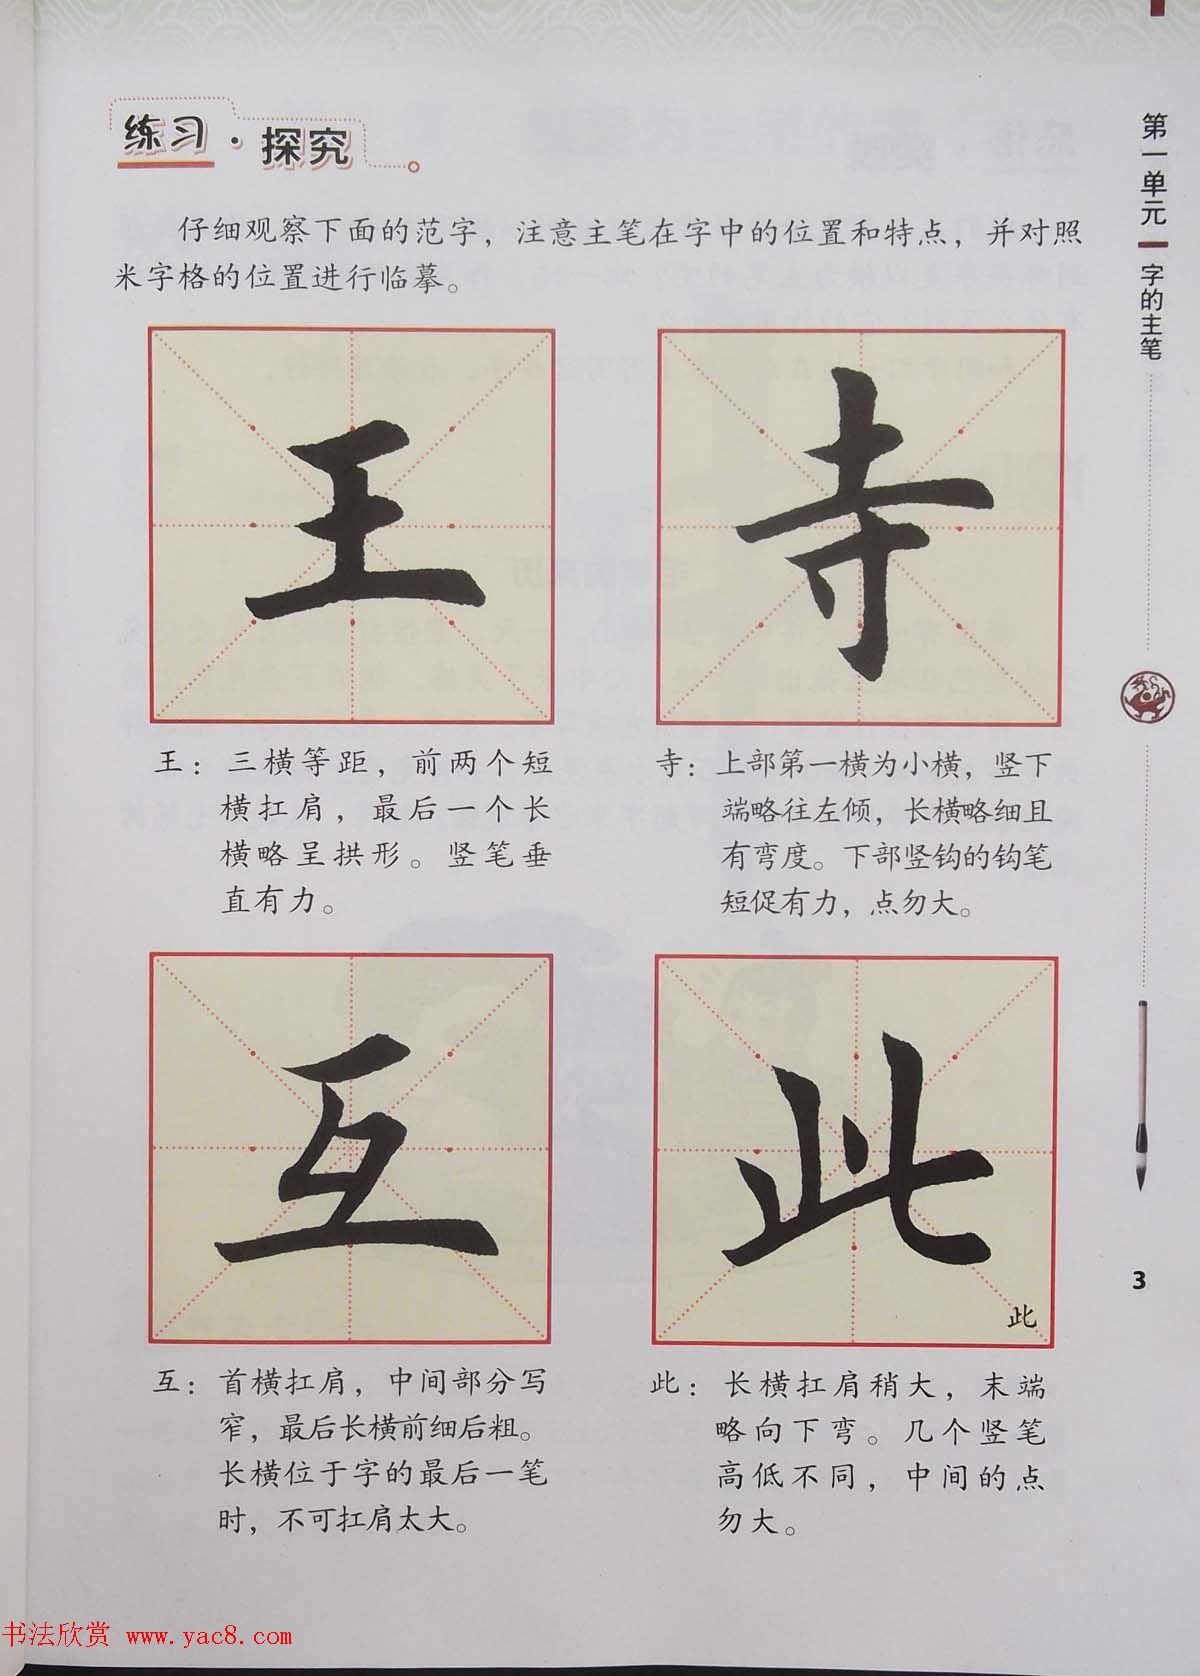 练习·探究
仔细观察下面的范字，注意主笔在字中的位置和特点，并对照
米字格的位置进行临摹。
王
寺
王：三横等距，前两个短
横扛肩，最后一个长
横略呈拱形。竖笔垂
直有力。
寺：上部第一横为小横，竖下
端略往左倾，长横略细且
有弯度。下部竖钩的钩笔
短促有力，点勿大。
互
此
此
互：首横扛肩，中间部分写
窄，最后长横前细后粗。
长横位于字的最后一笔
时，不可扛肩太大。
此：长横扛肩稍大，末端
略向下弯。几个竖笔
高低不同，中间的点
勿大。
第一单元
字的主笔
3
书法欣赏 www.yac8.com